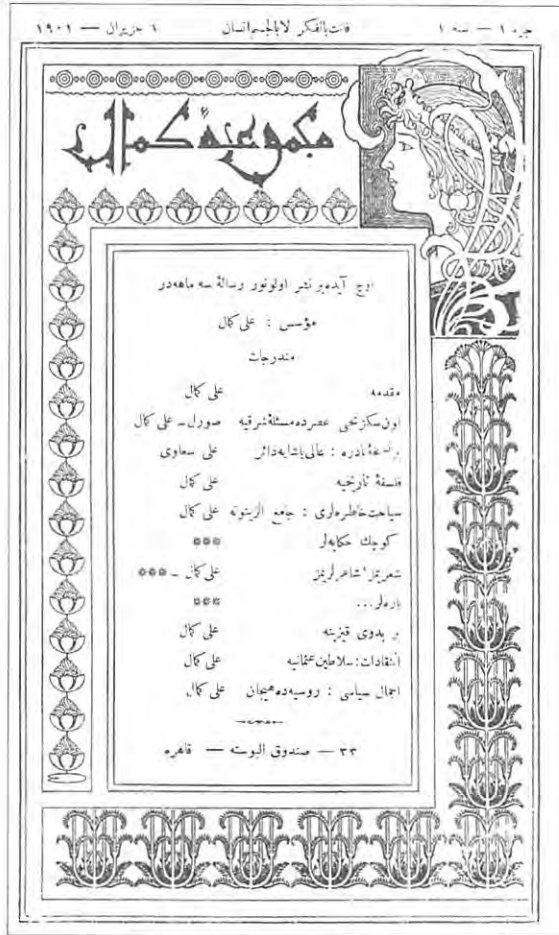 جزء ١ — سنه ١ فانت بالفكر لا بالجسم انسان ٦ حزيران — ١٩٠١
مجموعهٔ كمال
اوچ آيده بر نشر اولونور رسالهٔ سه ماهه در
مؤسس : على كمال
مندرجات
مقدمه على كمال
اون سكزنجى عصرده مسئلهٔ شرقيه صورل ــ على كمال
بر نسخهٔ نادره : عالى پاشايه دائر على سعاوى
فلسفهٔ تاريخيه على كمال
سياحت خاطره‌لرى : جامع الزيتونه على كمال
كوچك حكايه‌لر ***
شعريمز، شاعرلريمز على كمال ــ ***
پاره‌لر... ***
بر بدوى قيزينه على كمال
انتقادات : سلاطين عثمانيه على كمال
اجمال سياسى : روسيه‌ده هيجان على كمال
٣٣ — صندوق البوسته — قاهره